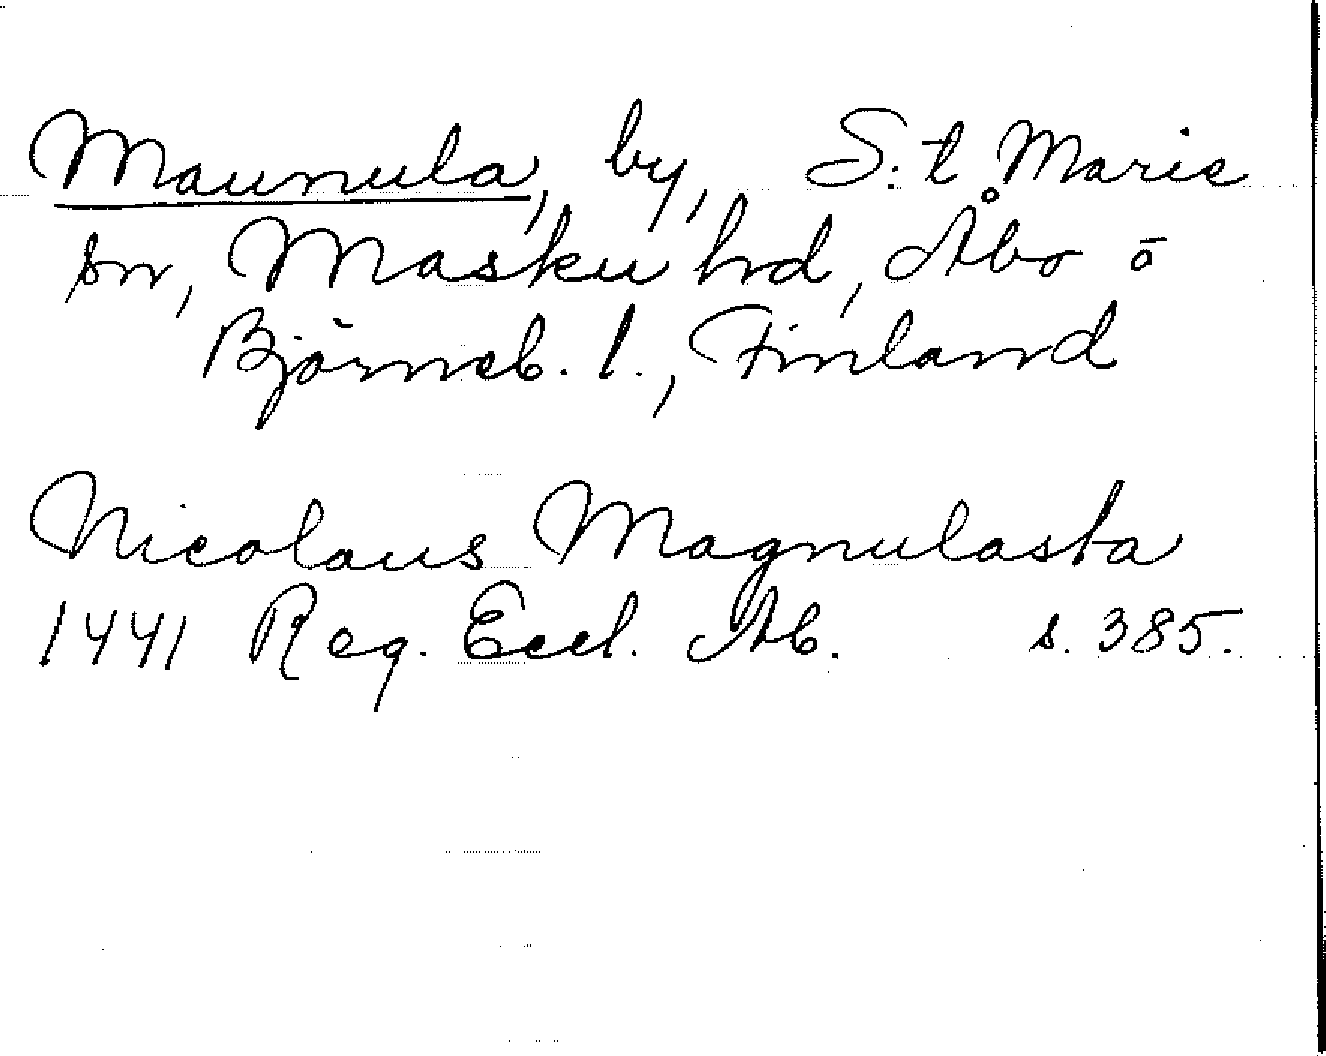 Maunula, by, S:t Marie
sn, Masku hd, Åbo o
Björneb. l., Finland
Nicolaus Magnulasta
1441 Reg. Eccl. Ab. s. 385.